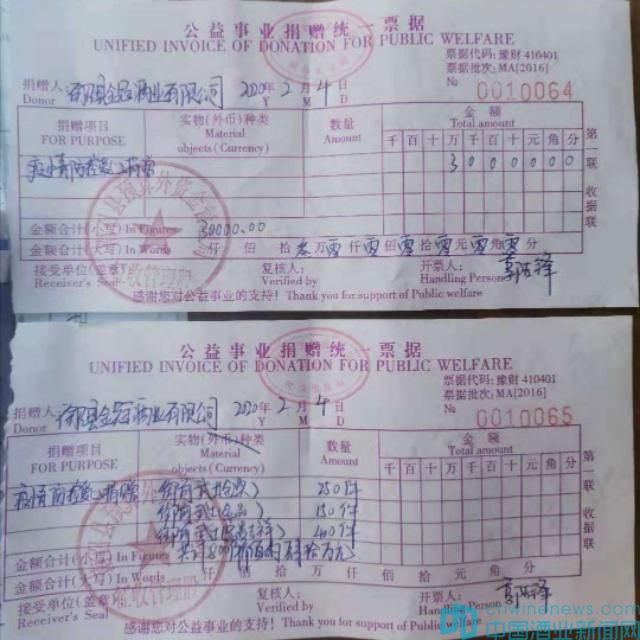 公益事业捐赠统一票据
UNIFIED INVOICE OF DONATION FOR PUBLIC WELFARE
票据代码: 豫财 410401
票据批次: MA[2016]
捐赠人: 有限公司 2020年 2月 4日 № 0010064
Donor Y M D
捐赠项目 实物(外币)种类 数量 金额
FOR PURPOSE Material objects (Currency) Amount Total amount
千 百 十 万 千 百 十 元 角 分
疫情防控 捐赠 3 0 0 0 0 0 0
金额合计(小写) In Figures 30000.00
金额合计(大写) In Words 仟 佰 拾 叁万零仟零佰零拾零元零角零分
接受单位(盖章) 复核人: 开票人:
Receiver's Seal Verified by Handling Person
感谢您对公益事业的支持! Thank you for support of Public welfare
第一联 收据联
公益事业捐赠统一票据
UNIFIED INVOICE OF DONATION FOR PUBLIC WELFARE
票据代码: 豫财 410401
票据批次: MA[2016]
捐赠人: 有限公司 2020年 2月 4日 № 0010065
Donor Y M D
捐赠项目 实物(外币)种类 数量 金额
FOR PURPOSE Material objects (Currency) Amount Total amount
千 百 十 万 千 百 十 元 角 分
疫情防控 捐赠 250件
150件
400件
金额合计(小写) In Figures
金额合计(大写) In Words 仟 佰 拾 万 仟 佰 拾 元 角 分
接受单位(盖章) 复核人: 开票人:
Receiver's Seal Verified by Handling Person
感谢您对公益事业的支持! Thank you for support of Public welfare
第一联 收据联
cnwinenews.com
中国酒业新闻网